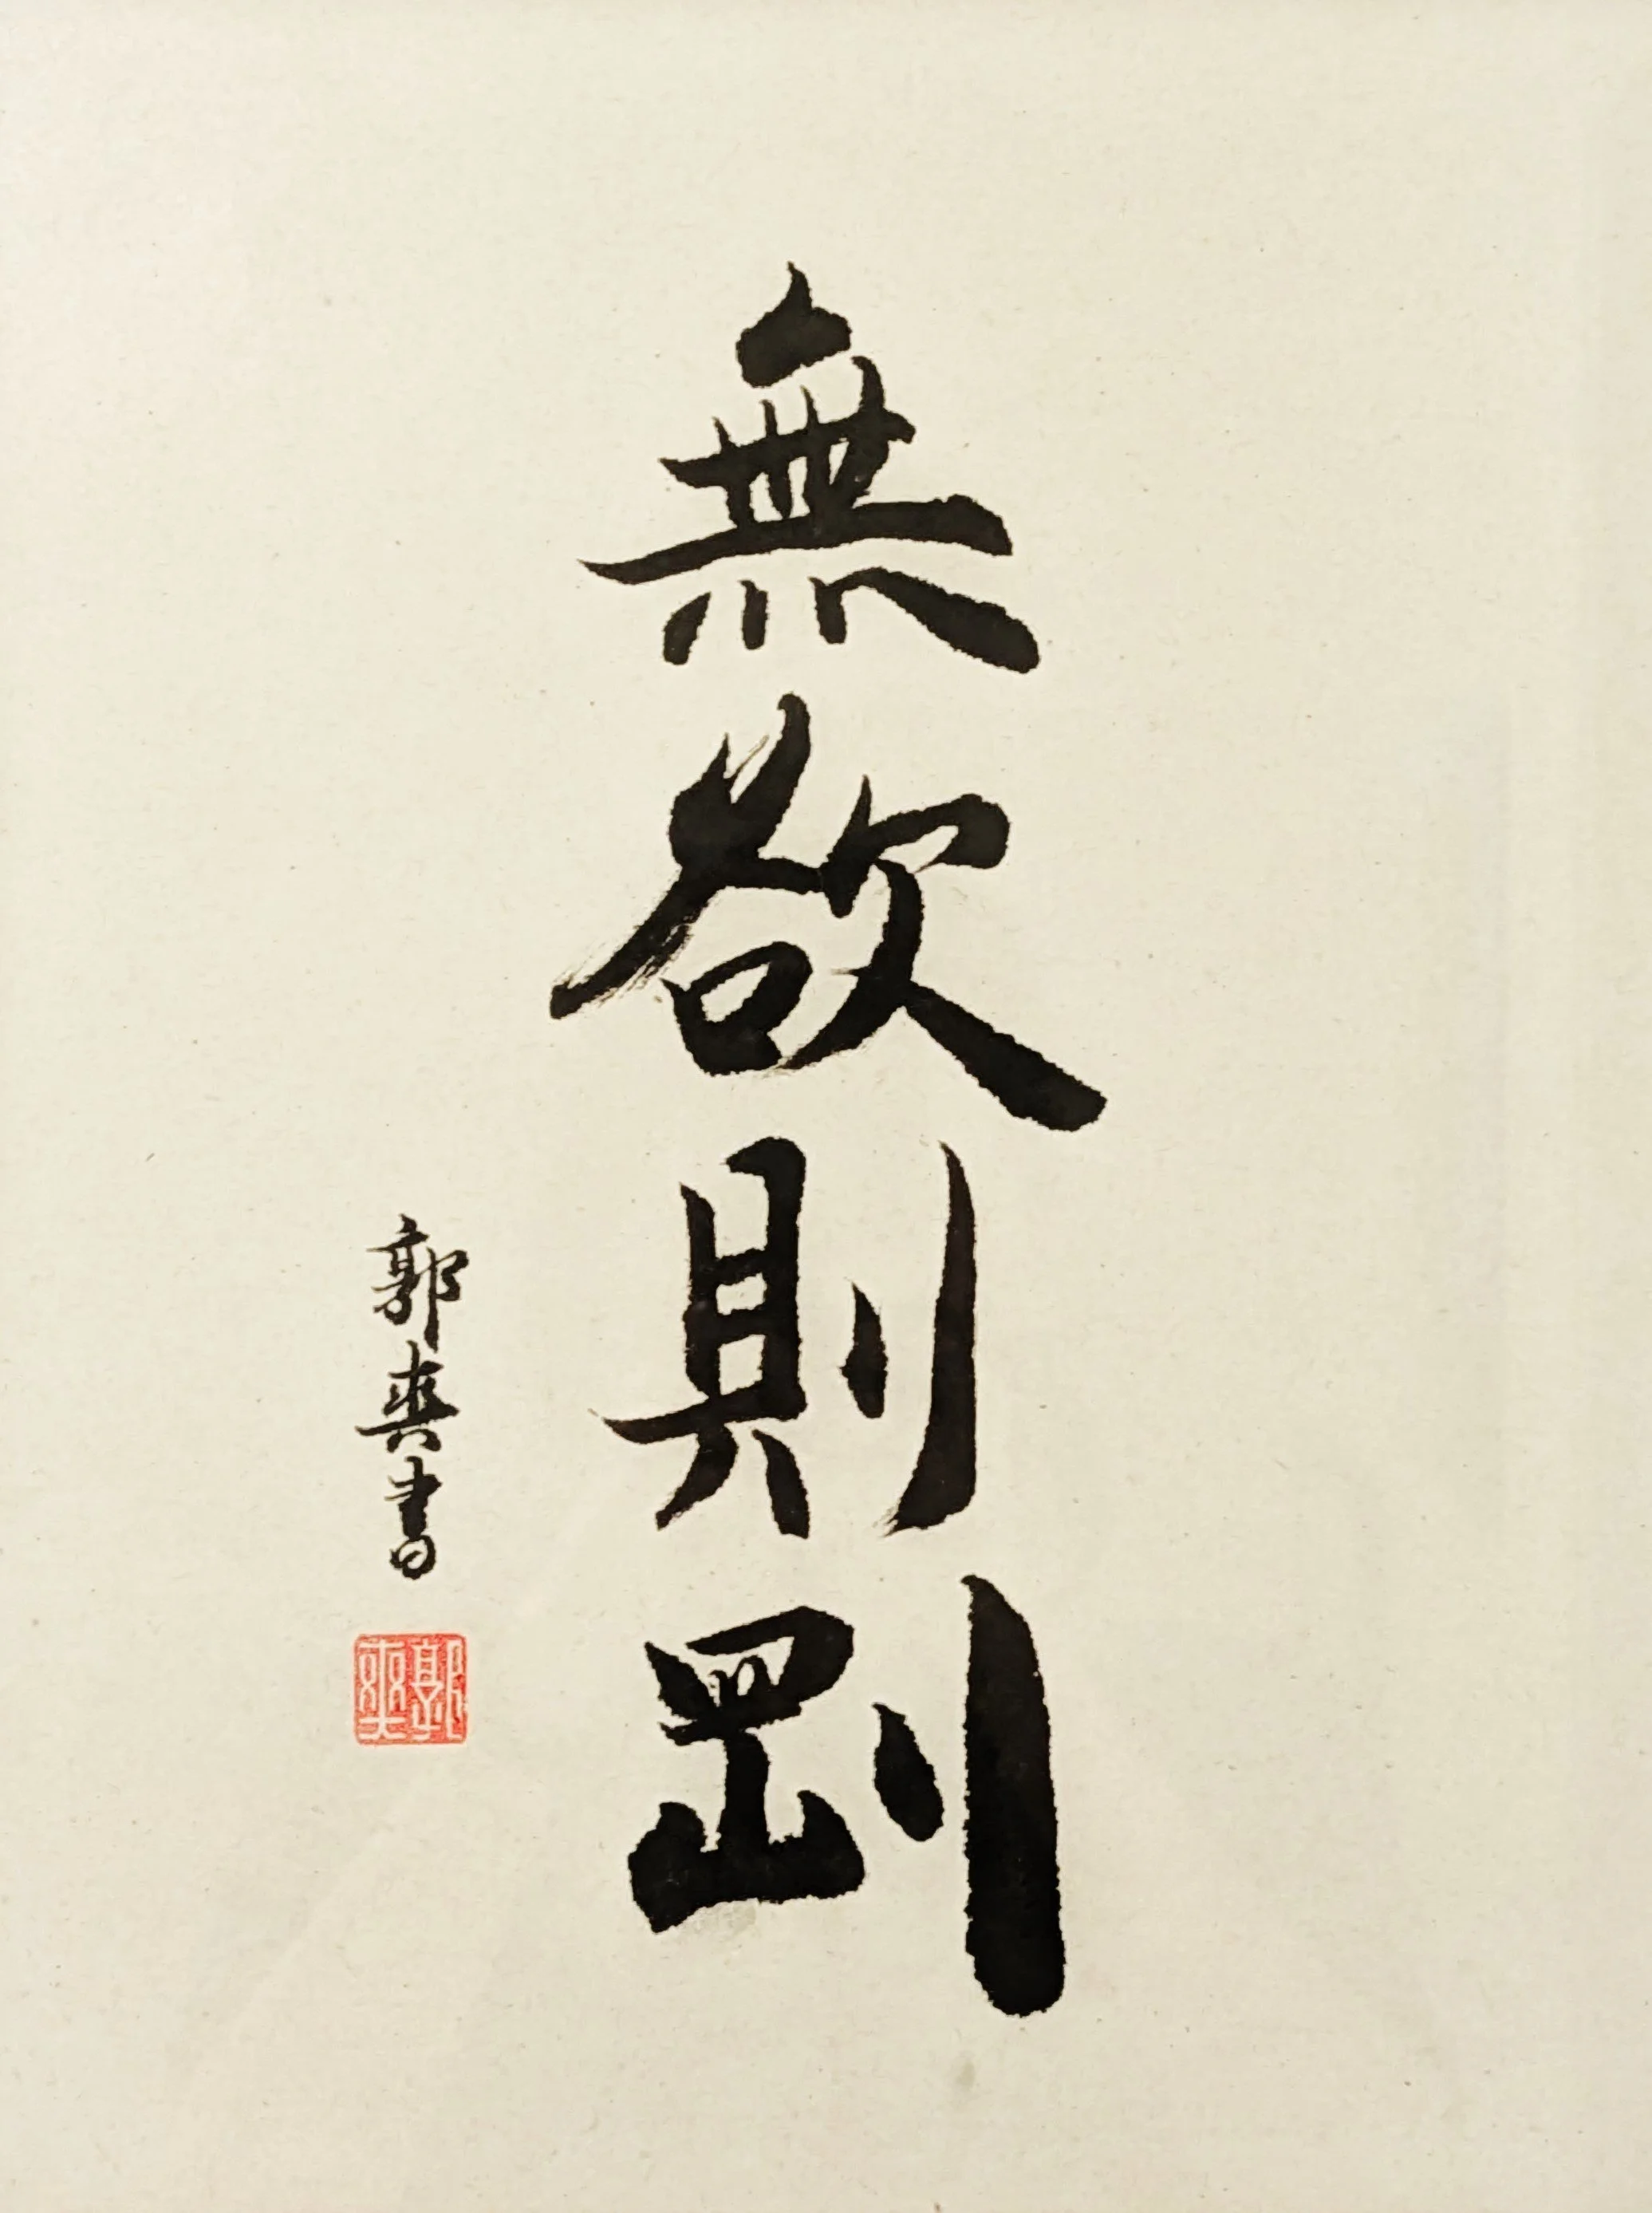 無欲則剛
郭爽書
郭爽